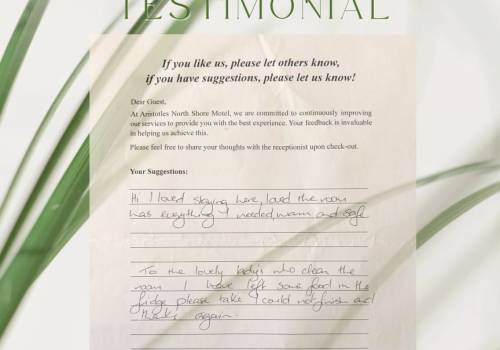 TESTIMONIAL
If you like us, please let others know,
if you have suggestions, please let us know!
Dear Guest,
At Aristotles North Shore Motel, we are committed to continuously improving
our services to provide you with the best experience. Your feedback is invaluable
in helping us achieve this.
Please feel free to share your thoughts with the receptionist upon check-out.
Your Suggestions:
Hi I loved staying here, loved the room
has everything I needed, warm and safe
To the lovely lady's who clean the
room I have left some food in the
fridge please take I could not finish and
thanks again.